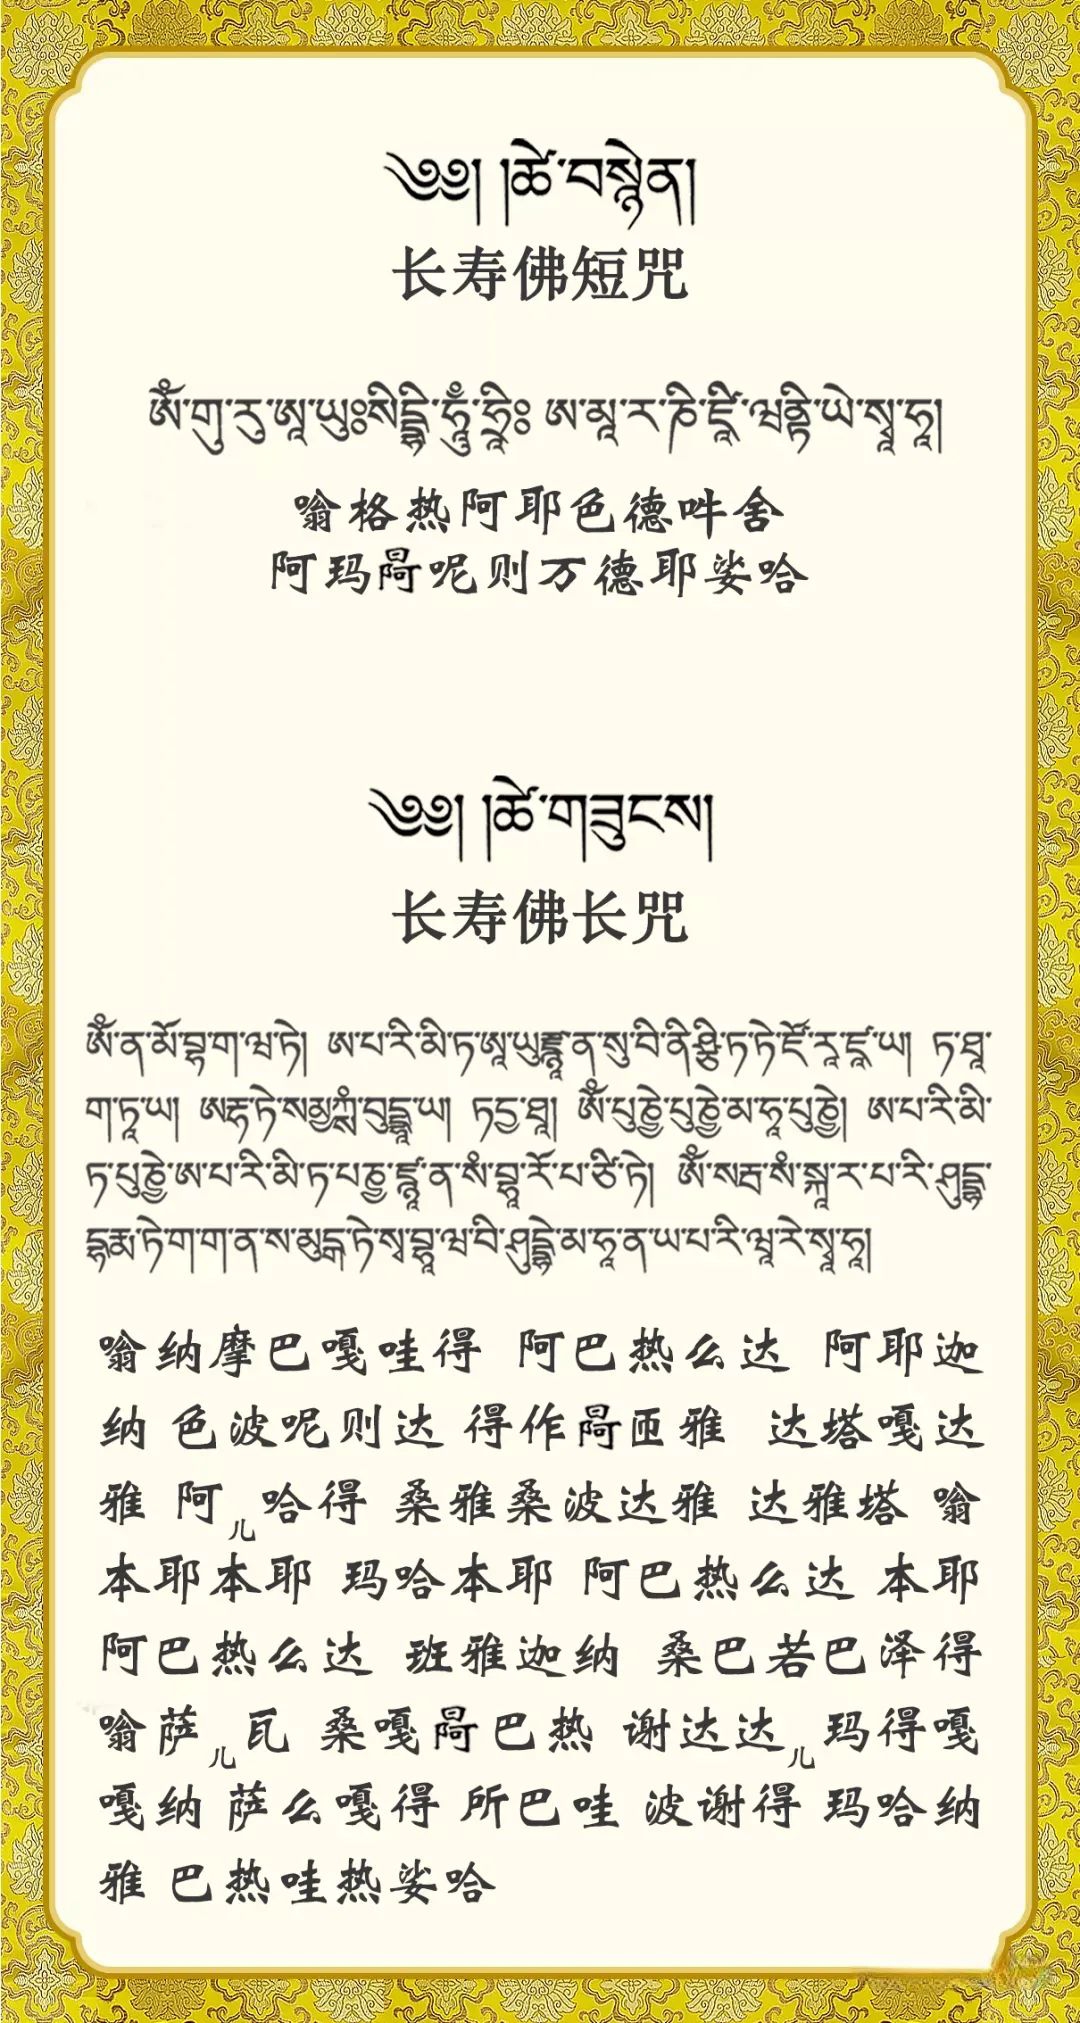 ༄༅། །ཚེ་བསྙེན།
长寿佛短咒
ཨོཾ་གུ་རུ་ཨཱ་ཡུཿསིདྡྷི་ཧཱུྃ་ཧྲཱིཿ ཨ་མཱ་ར་ཎི་ཛཱི་ཝནྟི་ཡེ་སྭཱ་ཧཱ།
嗡格热阿耶色德吽舍
阿玛 呢则万德耶娑哈
༄༅། །ཚེ་གཟུངས།
长寿佛长咒
ཨོཾ་ན་མོ་བྷ་ག་ཝ་ཏེ། ཨ་པ་རི་མི་ཏ་ཨཱ་ཡུརྫྙཱ་ན་སུ་བི་ནི་ཤྩི་ཏ་ཏེ་ཛོ་རཱ་ཛཱ་ཡ། ཏ་ཐཱ་
ག་ཏཱ་ཡ། ཨརྷ་ཏེ་སམྱཀྶཾ་བུདྡྷཱ་ཡ། ཏདྱ་ཐཱ། ཨོཾ་པུཎྱེ་པུཎྱེ་མ་ཧཱ་པུཎྱེ། ཨ་པ་རི་མི་
ཏ་པུཎྱེ་ཨ་པ་རི་མི་ཏ་པཎྱ་ཛྙཱ་ན་སཾ་བྷཱ་རོ་པ་ཙི་ཏེ། ཨོཾ་སརྦ་སཾ་སྐཱ་ར་པ་རི་ཤུདྡྷ་
དྷརྨ་ཏེ་ག་ག་ན་ས་མུདྒ་ཏེ་སྭ་བྷཱ་ཝ་བི་ཤུདྡྷེ་མ་ཧཱ་ན་ཡ་པ་རི་ཝཱ་རེ་སྭཱ་ཧཱ།
嗡纳摩巴嘎哇得 阿巴热么达 阿耶迦
纳 色波呢则达 得作 匝雅 达塔嘎达
雅 阿儿哈得 桑雅桑波达雅 达雅塔 嗡
本耶本耶 玛哈本耶 阿巴热么达 本耶
阿巴热么达 班雅迦纳 桑巴若巴泽得
嗡萨儿瓦 桑嘎 巴热 谢达达儿玛得嘎
嘎纳 萨么嘎得 所巴哇 波谢得 玛哈纳
雅 巴热哇热娑哈